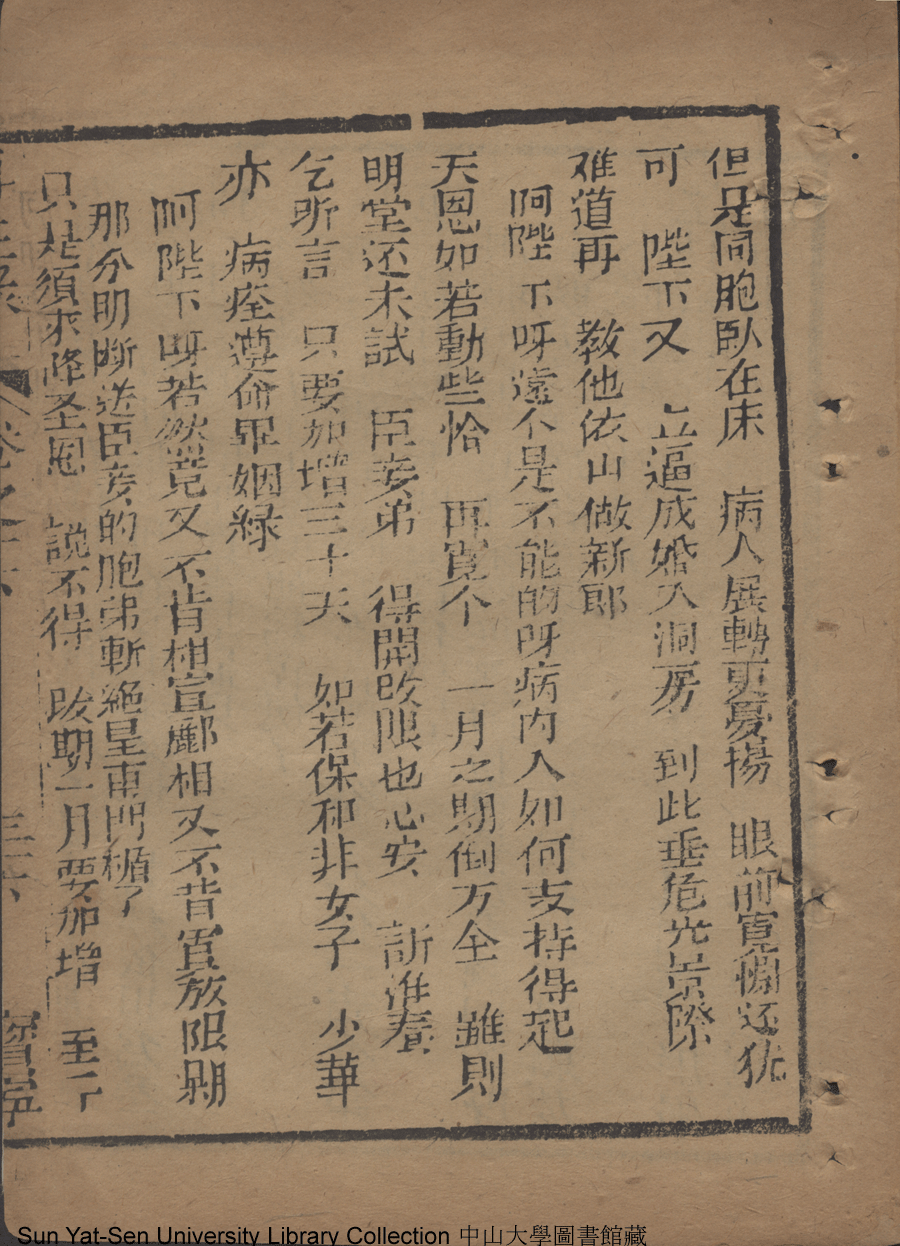 但是同胞臥在床　病人展轉更憂揚　眼前寬懶还犹
可　陛下又　立逼成婚入洞房　到此垂危光景際
难道再　教他依山做新郎
阿陛下呀遠不是不能的呀病内人如何支持得起
天恩如若動些恰　再寬个　一月之期倒万全　雖則
明堂还未試　臣妾弟　得開改限也心安　訢准奏
乞昕言　只要加增三十天　如若保和非女子　少華
亦　病痊遵命畢姻緑
阿陛下呀若然竟又不肯相宣酈相又不昔置放限期
那分明断送臣妾的胞弟斬絶皇甫門楯了
只是須求降圣恩　説不得　改期一月要加增　至于
再生录　卷之十六　三六　寶寧
Sun Yat-Sen University Library Collection 中山大學圖書館藏